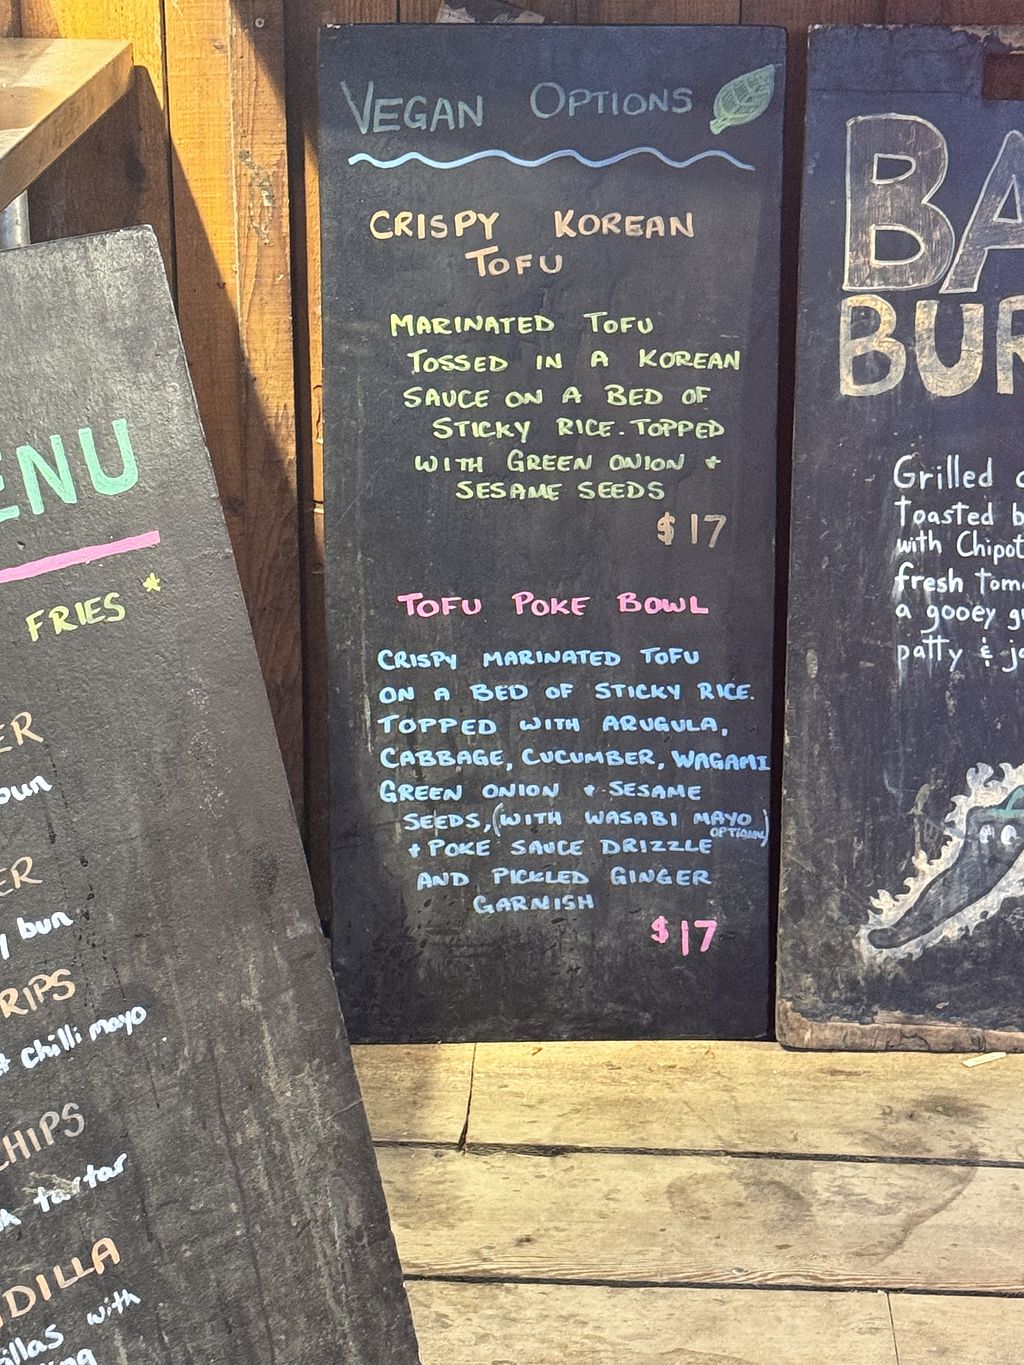 VEGAN OPTIONS
CRISPY KOREAN
TOFU
MARINATED TOFU
TOSSED IN A KOREAN
SAUCE ON A BED OF
STICKY RICE. TOPPED
WITH GREEN ONION +
SESAME SEEDS
$17
TOFU POKE BOWL
CRISPY MARINATED TOFU
ON A BED OF STICKY RICE.
TOPPED WITH ARUGULA,
CABBAGE, CUCUMBER, WAGAMI
GREEN ONION + SESAME
SEEDS, (WITH WASABI MAYO
OPTIONAL)
+ POKE SAUCE DRIZZLE
AND PICKLED GINGER
GARNISH
$17
ENU
FRIES *
ER
bun
ER
y bun
RIPS
t chilli mayo
CHIPS
tartar
DILLA
illas with
BA
BUR
Grilled c
Toasted b
with Chipot
fresh tom
a gooey g
patty & ja